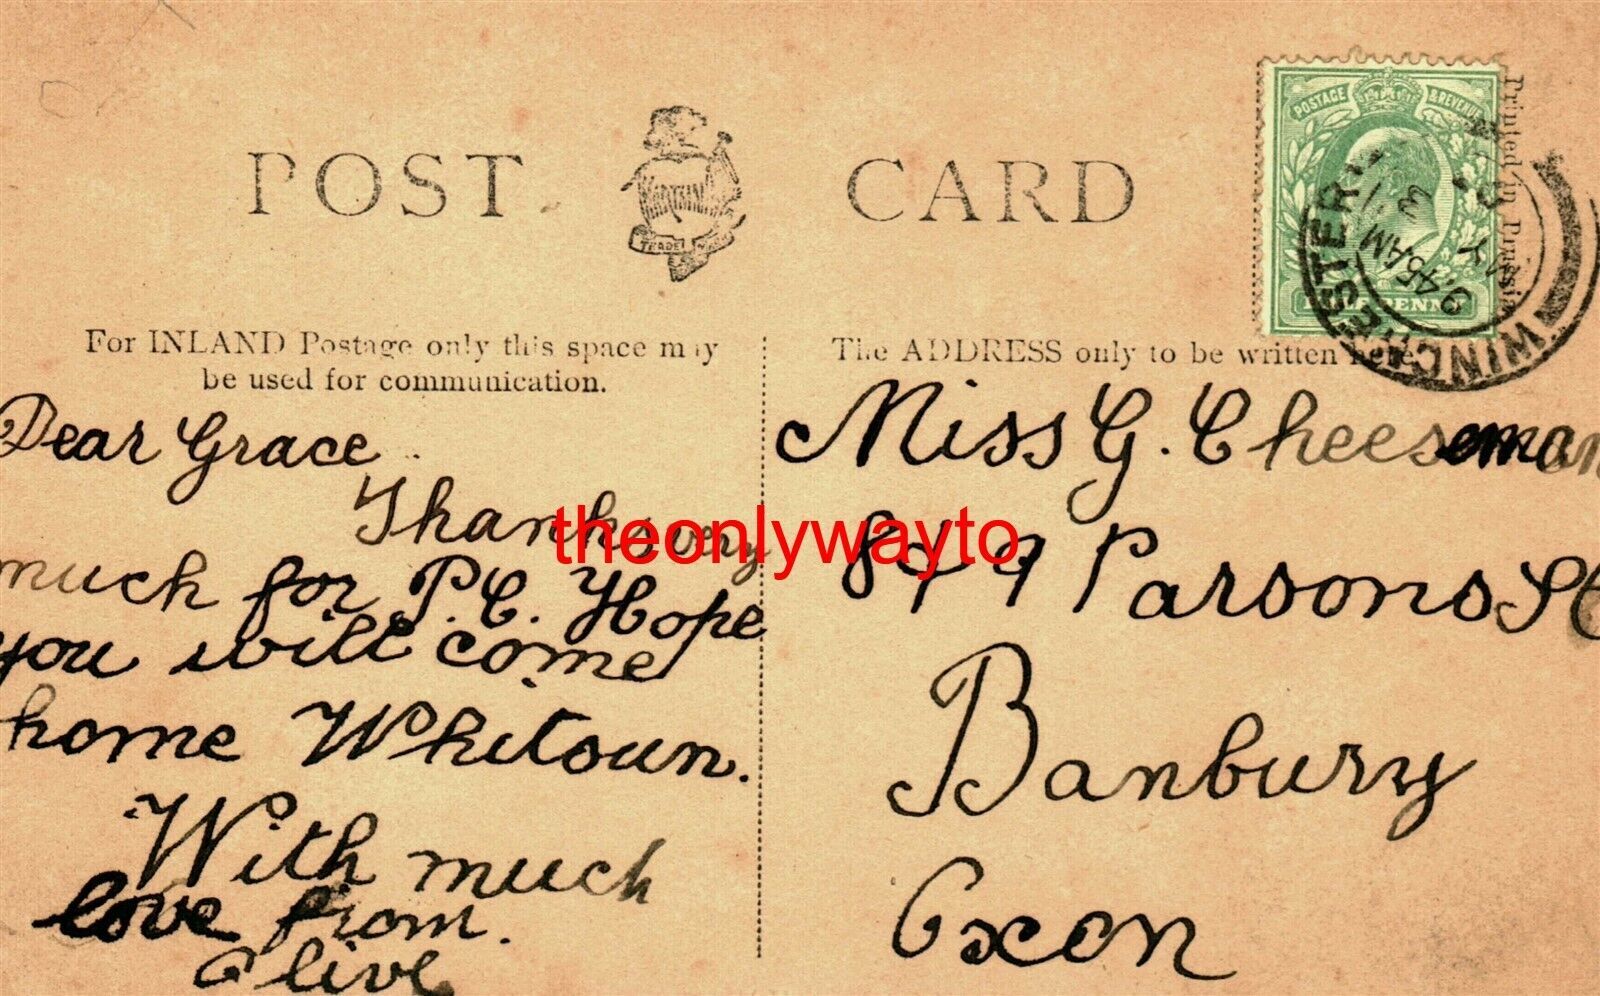 POST CARD
WARTSINA
TRADE MARK
POSTAGE & REVENUE
HALFPENNY
Printed in Prussia
WINCHESTER
9.45 AM
MY 3
For INLAND Postage only this space may
be used for communication.
The ADDRESS only to be written here.
Dear Grace
Thanks very
much for P.C. Hope
you will come
home Whitsun.
With much
love from.
Olive
Miss G. Cheeseman
8 & 9 Parsons St
Banbury
Oxon
theonlywayto